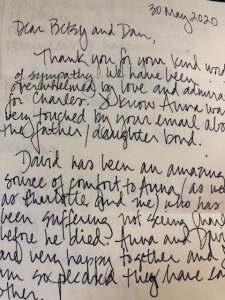 30 May 2020
Dear Betsy and Dan,
Thank you for your kind word
of sympathy! We have been
overwhelmed by love and admira
for Charles. I know Anna was
very touched by your email abo
the father/daughter bond.
David has been an amazing
source of comfort to Anna (as we
as Charlotte and me) who has
been suffering not seeing Charl
before he died. Anna and
are very happy together and
am so pleased they have
other.